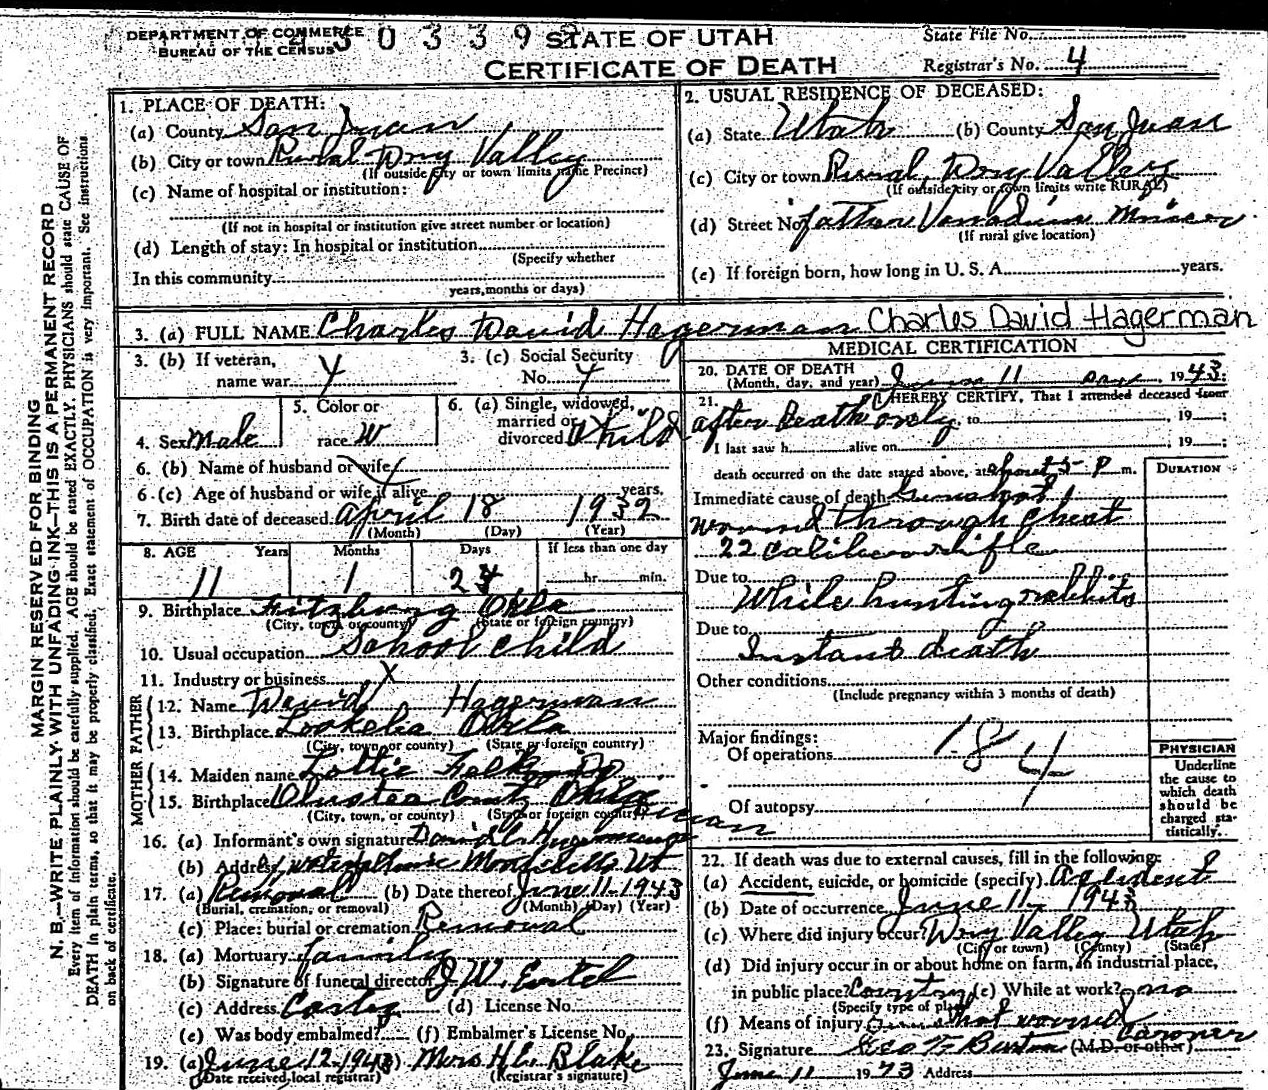 DEPARTMENT OF COMMERCE
BUREAU OF THE CENSUS
30339
STATE OF UTAH
CERTIFICATE OF DEATH
State File No.
Registrar's No. 4
MARGIN RESERVED FOR BINDING
N. B.—WRITE PLAINLY WITH UNFADING INK—THIS IS A PERMANENT RECORD
Every item of information should be carefully supplied. AGE should be stated EXACTLY. PHYSICIANS should state CAUSE OF
DEATH in plain terms, so that it may be properly classified. Exact statement of OCCUPATION is very important. See instructions
on back of certificate.
1. PLACE OF DEATH:
(a) County San Juan
(b) City or town Rural Dry Valley
(If outside city or town limits name Precinct)
(c) Name of hospital or institution:
(If not in hospital or institution give street number or location)
(d) Length of stay: In hospital or institution
(Specify whether
In this community
years, months or days)
2. USUAL RESIDENCE OF DECEASED:
(a) State Utah (b) County San Juan
(c) City or town Rural, Dry Valley
(If outside city or town limits write RURAL)
(d) Street No. father Vanadium Miner
(If rural give location)
(e) If foreign born, how long in U. S. A. years.
3. (a) FULL NAME Charles David Hagerman Charles David Hagerman
3. (b) If veteran,
name war
3. (c) Social Security
No.
4. Sex Male
5. Color or
race W
6. (a) Single, widowed,
married or
divorced Child
6. (b) Name of husband or wife
6. (c) Age of husband or wife if alive years.
7. Birth date of deceased April 18 1932
(Month) (Day) (Year)
8. AGE Years Months Days If less than one day
11 1 24 hr. min.
9. Birthplace Fitzhugh Okla
(City, town or county) (State or foreign country)
10. Usual occupation School child
11. Industry or business X
FATHER
12. Name David Hagerman
13. Birthplace Lookeba Okla
(City, town, or county) (State or foreign country)
MOTHER
14. Maiden name Lottie
15. Birthplace Olustee
(City, town, or county) (State or foreign country)
16. (a) Informant's own signature David L Hagerman
(b) Address Monticello Ut
17. (a) Removal (b) Date thereof June 11-1943
(Burial, cremation, or removal) (Month) (Day) (Year)
(c) Place: burial or cremation Removal
18. (a) Mortuary family
(b) Signature of funeral director J. W.
(c) Address (d) License No.
(e) Was body embalmed? (f) Embalmer's License No.
19. (a) June 12-1943 Mrs H. E. Blake
(Date received local registrar) (Registrar's signature)
MEDICAL CERTIFICATION
20. DATE OF DEATH
(Month, day, and year) June 11 1943
21. I HEREBY CERTIFY, That I attended deceased from
after Death only, to 19
I last saw h alive on 19
death occurred on the date stated above, at about 5 P m.
DURATION
Immediate cause of death Gunshot
wound through chest
22 caliber rifle
Due to
While hunting rabbits
Due to
Instant death
Other conditions
(Include pregnancy within 3 months of death)
Major findings:
Of operations
184
Of autopsy
PHYSICIAN
Underline
the cause to
which death
should be
charged sta-
tistically.
22. If death was due to external causes, fill in the following:
(a) Accident, suicide, or homicide (specify) Accident
(b) Date of occurrence June 11, 1943
(c) Where did injury occur? Dry Valley Utah
(City or town) (County) (State)
(d) Did injury occur in or about home on farm, in industrial place,
in public place? Country (e) While at work? no
(Specify type of place)
(f) Means of injury Gun shot wound
23. Signature Geo F Burton (M.D. or other) Coroner
June 11 1973 Address